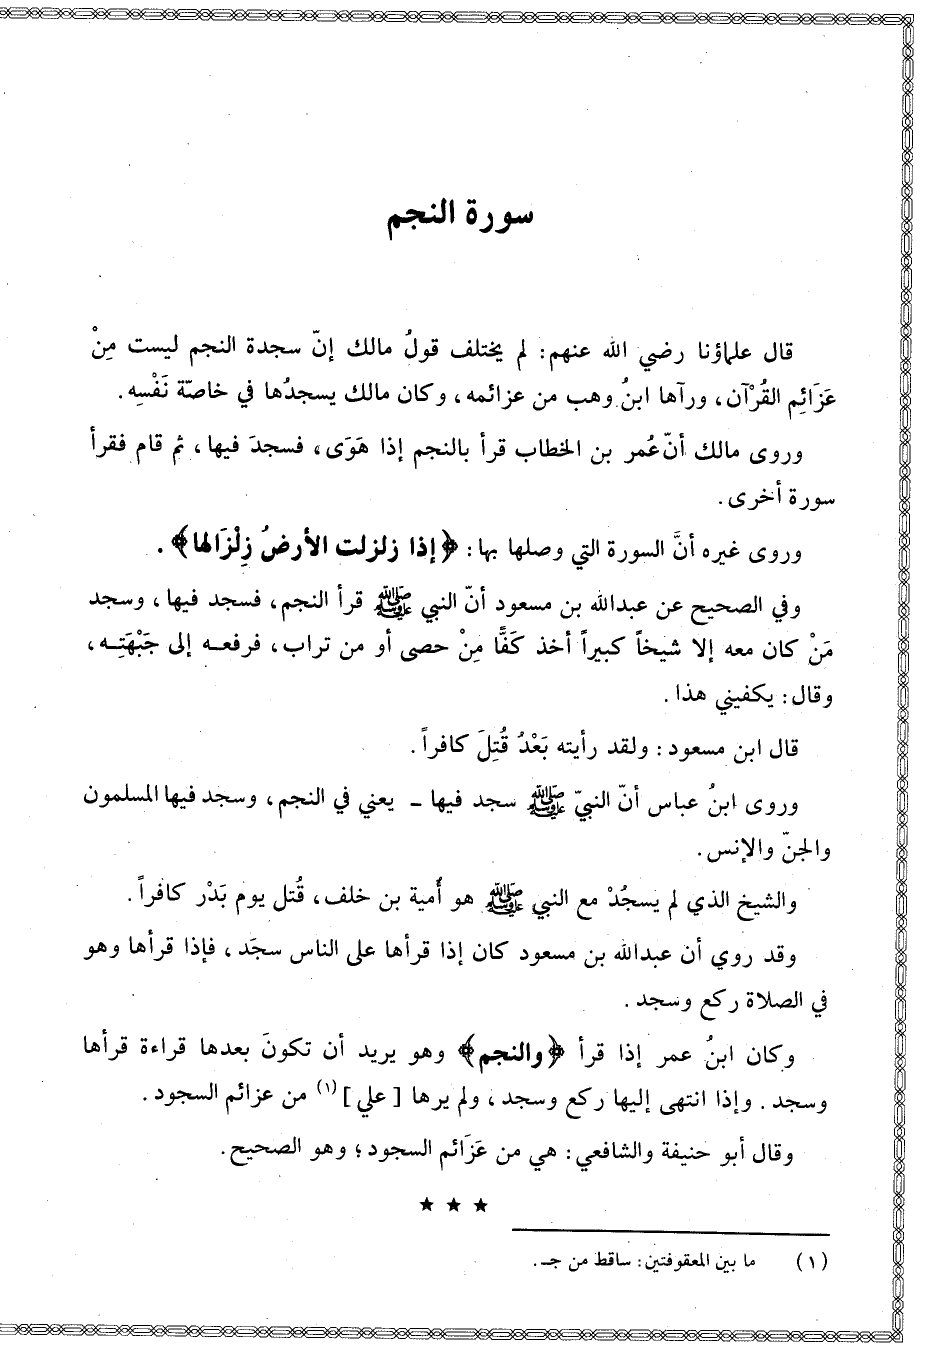 سورة النجم
قال علماؤنا رضي الله عنهم: لم يختلف قولُ مالك إنّ سجدة النجم ليست مِنْ
عَزَائِم القُرْآن، ورآها ابنُ وهب من عزائمه، وكان مالك يسجدُها في خاصّة نَفْسِه.
وروى مالك أنّ عُمر بن الخطاب قرأ بالنجم إذا هَوَى، فسجدَ فيها، ثم قام فقرأ
سورة أخرى.
وروى غيره أنَّ السورة التي وصلها بها: ﴿إذا زلزلت الأرضُ زِلْزَالها﴾.
وفي الصحيح عن عبدالله بن مسعود أنّ النبي ﷺ قرأ النجم، فسجد فيها، وسجد
مَنْ كان معه إلا شيخاً كبيراً أخذ كَفًّا مِنْ حصى أو من تراب، فرفعه إلى جَبْهَتِه،
وقال: يكفيني هذا.
قال ابن مسعود: ولقد رأيته بَعْدُ قُتِلَ كافراً.
وروى ابنُ عباس أنّ النبيّ ﷺ سجد فيها - يعني في النجم، وسجد فيها المسلمون
والجنّ والإنس.
والشيخ الذي لم يسجُدْ مع النبي ﷺ هو أُمية بن خلف، قُتل يوم بَدْر كافراً.
وقد روي أن عبدالله بن مسعود كان إذا قرأها على الناس سجَد، فإذا قرأها وهو
في الصلاة ركع وسجد.
وكان ابنُ عمر إذا قرأ ﴿والنجم﴾ وهو يريد أن تكونَ بعدها قراءة قرأها
وسجد. وإذا انتهى إليها ركع وسجد، ولم يرها [علي] (١) من عزائم السجود.
وقال أبو حنيفة والشافعي: هي من عَزَائم السجود؛ وهو الصحيح.
★ ★ ★
(١) ما بين المعقوفتين: ساقط من جـ.